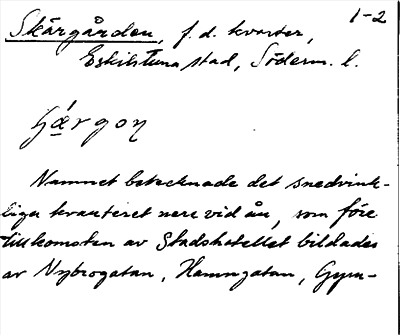 1-2
Skärgården, f. d. kvarter,
Eskilstuna stad, Söderm. l.
Namnet betecknade det snedvink-
liga kvarteret nere vid ån, som före
tillkomsten av Stadshotellet bildades
av Nybrogatan, Hamngatan, Gym-